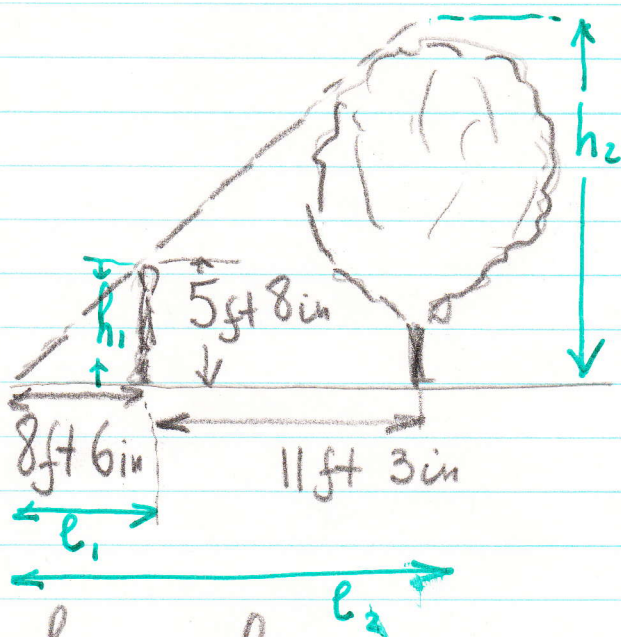 h₂
h₁
5ft 8in
8ft 6in
11ft 3in
l₁
l₂